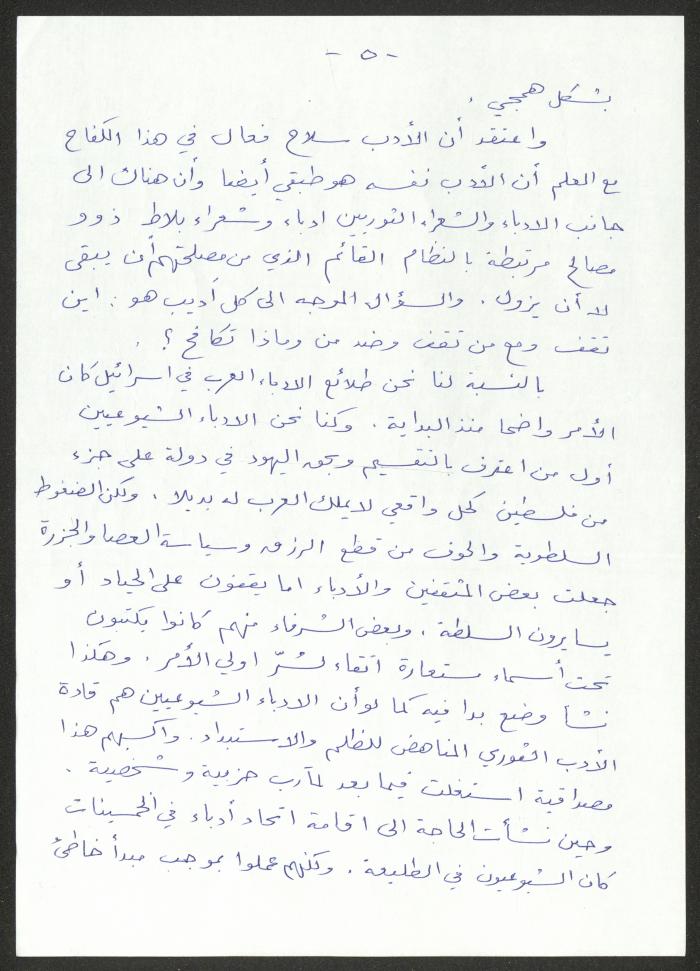 - ٥ -
بشكل همجي .
واعتقد أن الأدب سلاح فعال في هذا الكفاح
مع العلم أن الأدب نفسه هو طبقي أيضا وأن هناك الى
جانب الادباء والشعراء الثوريين ادباء وشعراء بلاط ذوو
مصالح مرتبطة بالنظام القائم الذي من مصلحتهم أن يبقى
لا أن يزول . والسؤال الموجه الى كل أديب هو : اين
تقف ومع من تقف وضد من وماذا تكافح ؟ .
بالنسبة لنا نحن طلائع الادباء العرب في اسرائيل كان
الأمر واضحا منذ البداية . وكنا نحن الادباء الشيوعيين
أول من اعترف بالتقسيم وبحق اليهود في دولة على جزء
من فلسطين كحل واقعي لا يملك العرب له بديلا . ولكن الضغوط
السلطوية والخوف من قطع الرزق وسياسة العصا والجزرة
جعلت بعض المثقفين والأدباء اما يقفون على الحياد أو
يسايرون السلطة . وبعض الشرفاء منهم كانوا يكتبون
تحت أسماء مستعارة اتقاء لشرّ اولي الأمر . وهكذا
نشأ وضع بدا فيه كما لو أن الادباء الشيوعيين هم قادة
الأدب الثوري المناهض للظلم والاستبداد . واكسبهم هذا
مصداقية استغلت فيما بعد لمآرب حزبية وشخصية .
وحين نشأت الحاجة الى اقامة اتحاد أدباء في الخمسينات
كان الشيوعيون في الطليعة . ولكنهم عملوا بموجب مبدأ خاطئ